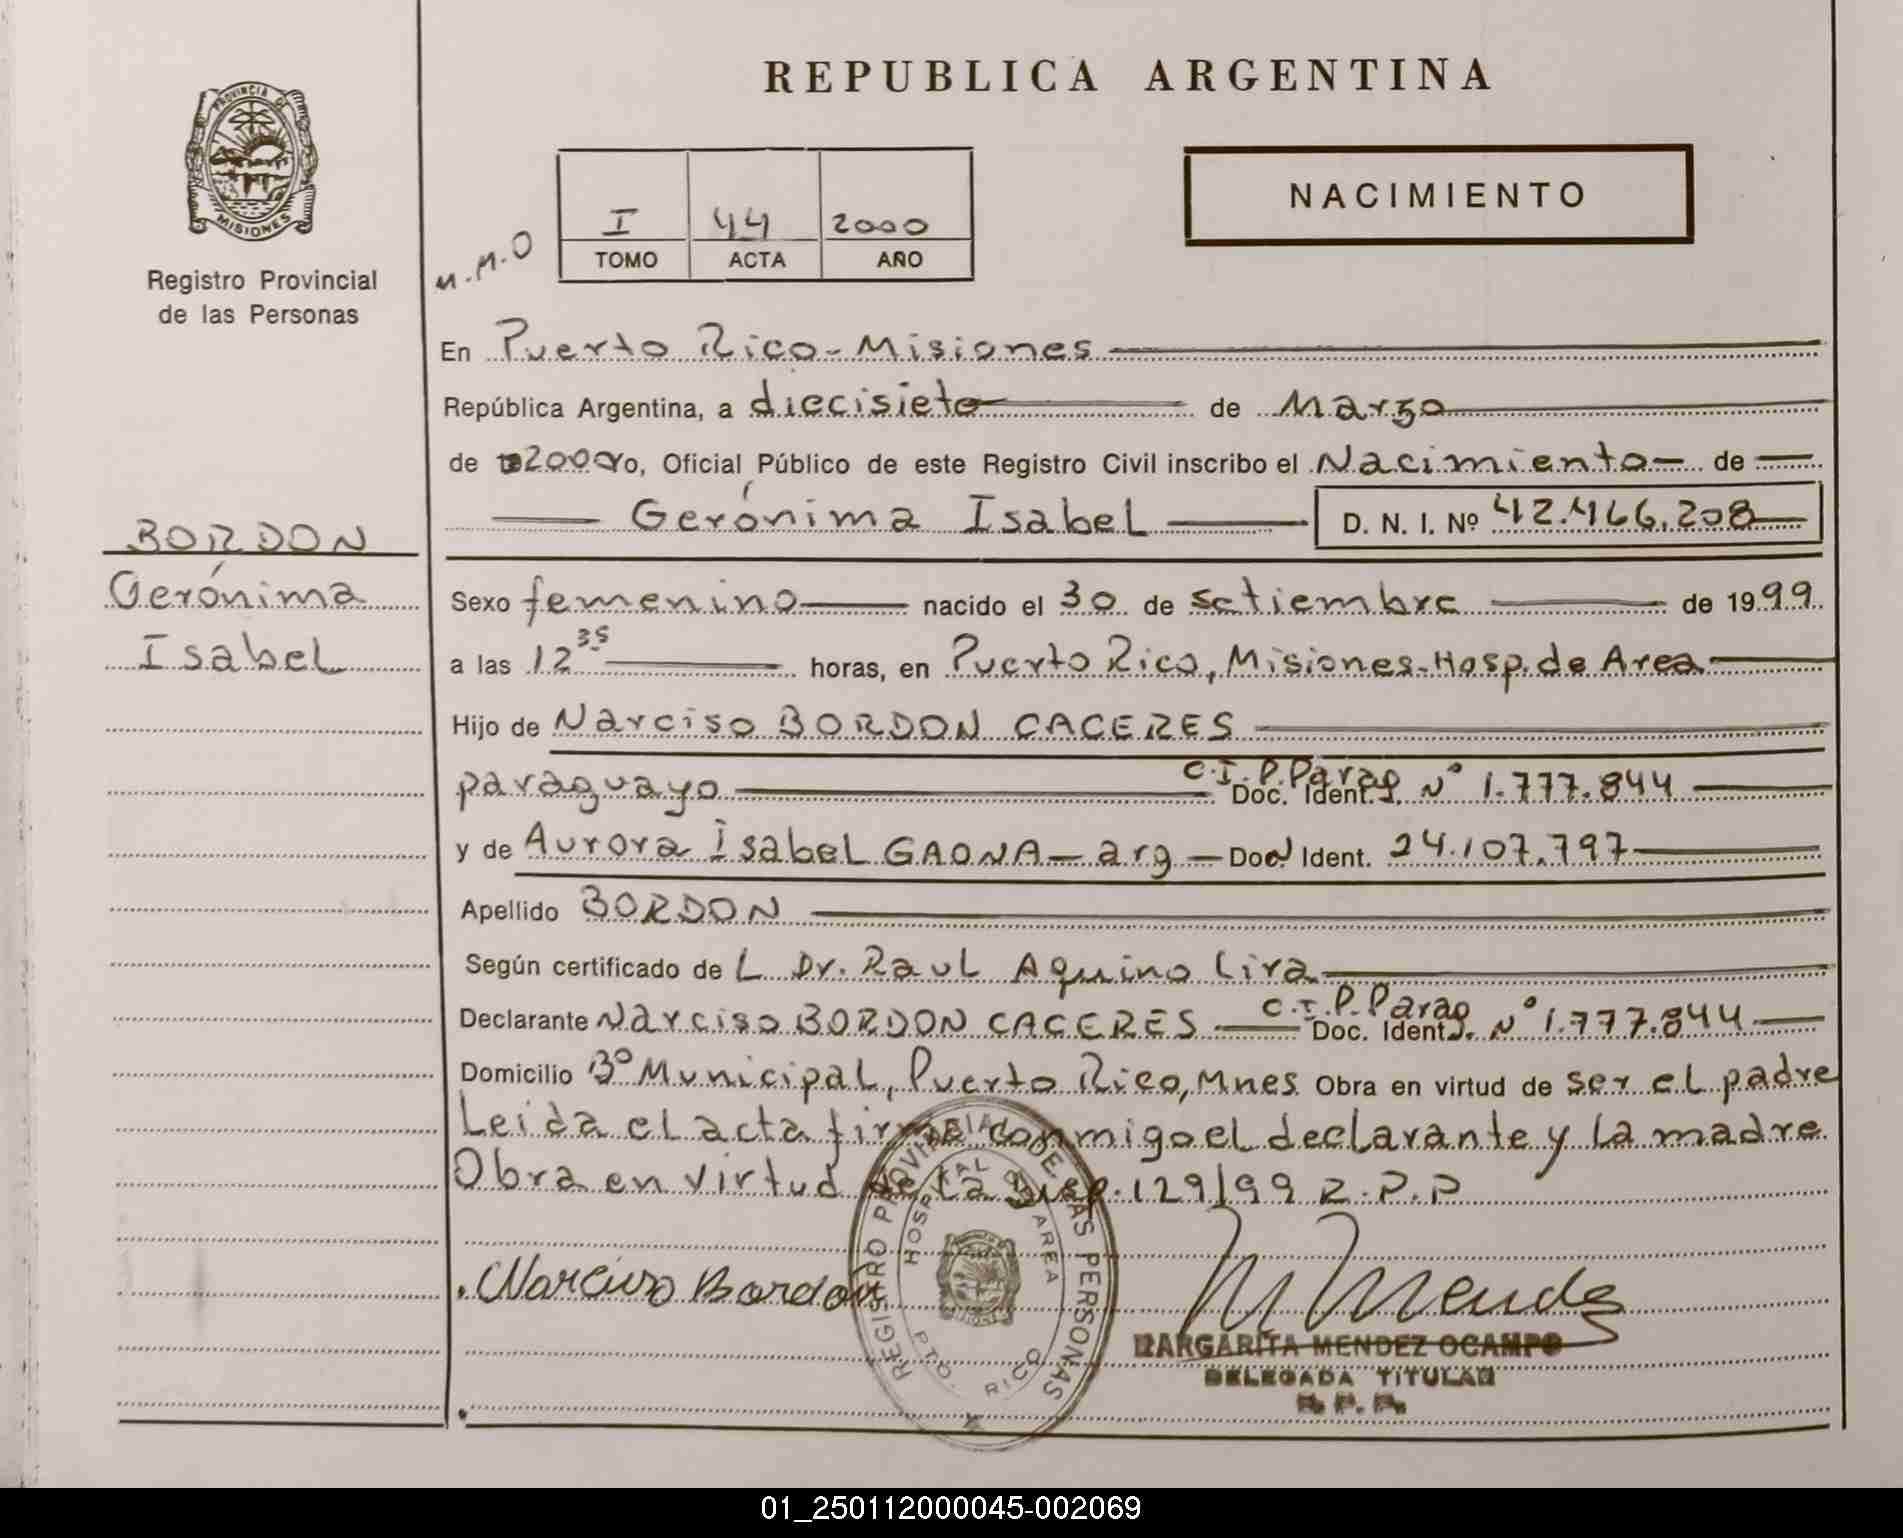 REPUBLICA ARGENTINA
PROVINCIA DE MISIONES
Registro Provincial
de las Personas
M.M.O
I 44 2000
TOMO ACTA AÑO
NACIMIENTO
En Puerto Rico-Misiones
República Argentina, a diecisiete de Marzo
de 2000 Yo, Oficial Público de este Registro Civil inscribo el Nacimiento de
Gerónima Isabel D. N. I. Nº 42.466.208
BORDON
Gerónima
Isabel
Sexo femenino nacido el 30 de setiembre de 1999
a las 12 35 horas, en Puerto Rico, Misiones-Hosp. de Area
Hijo de Narciso BORDON CACERES
paraguayo C.I.P.Parag Doc. Ident. Nº 1.777.844
y de Aurora Isabel GAONA - arg - Doc. Ident. 24.107.797
Apellido BORDON
Según certificado de L Dr. Raul Aquino Lira
Declarante Narciso BORDON CACERES C.I.P.Parag Doc. Ident. Nº 1.777.844
Domicilio Bº Municipal, Puerto Rico, Mnes Obra en virtud de ser el padre
Leída el acta firma conmigo el declarante y la madre
Obra en virtud de la 129/99 R.P.P
Narciso Bordon
M Mendez
REGISTRO PROVINCIAL DE LAS PERSONAS
HOSPITAL DE AREA
PTO. RICO
MARGARITA MENDEZ OCAMPO
DELEGADA TITULAR
R. P. P.
01_250112000045-002069